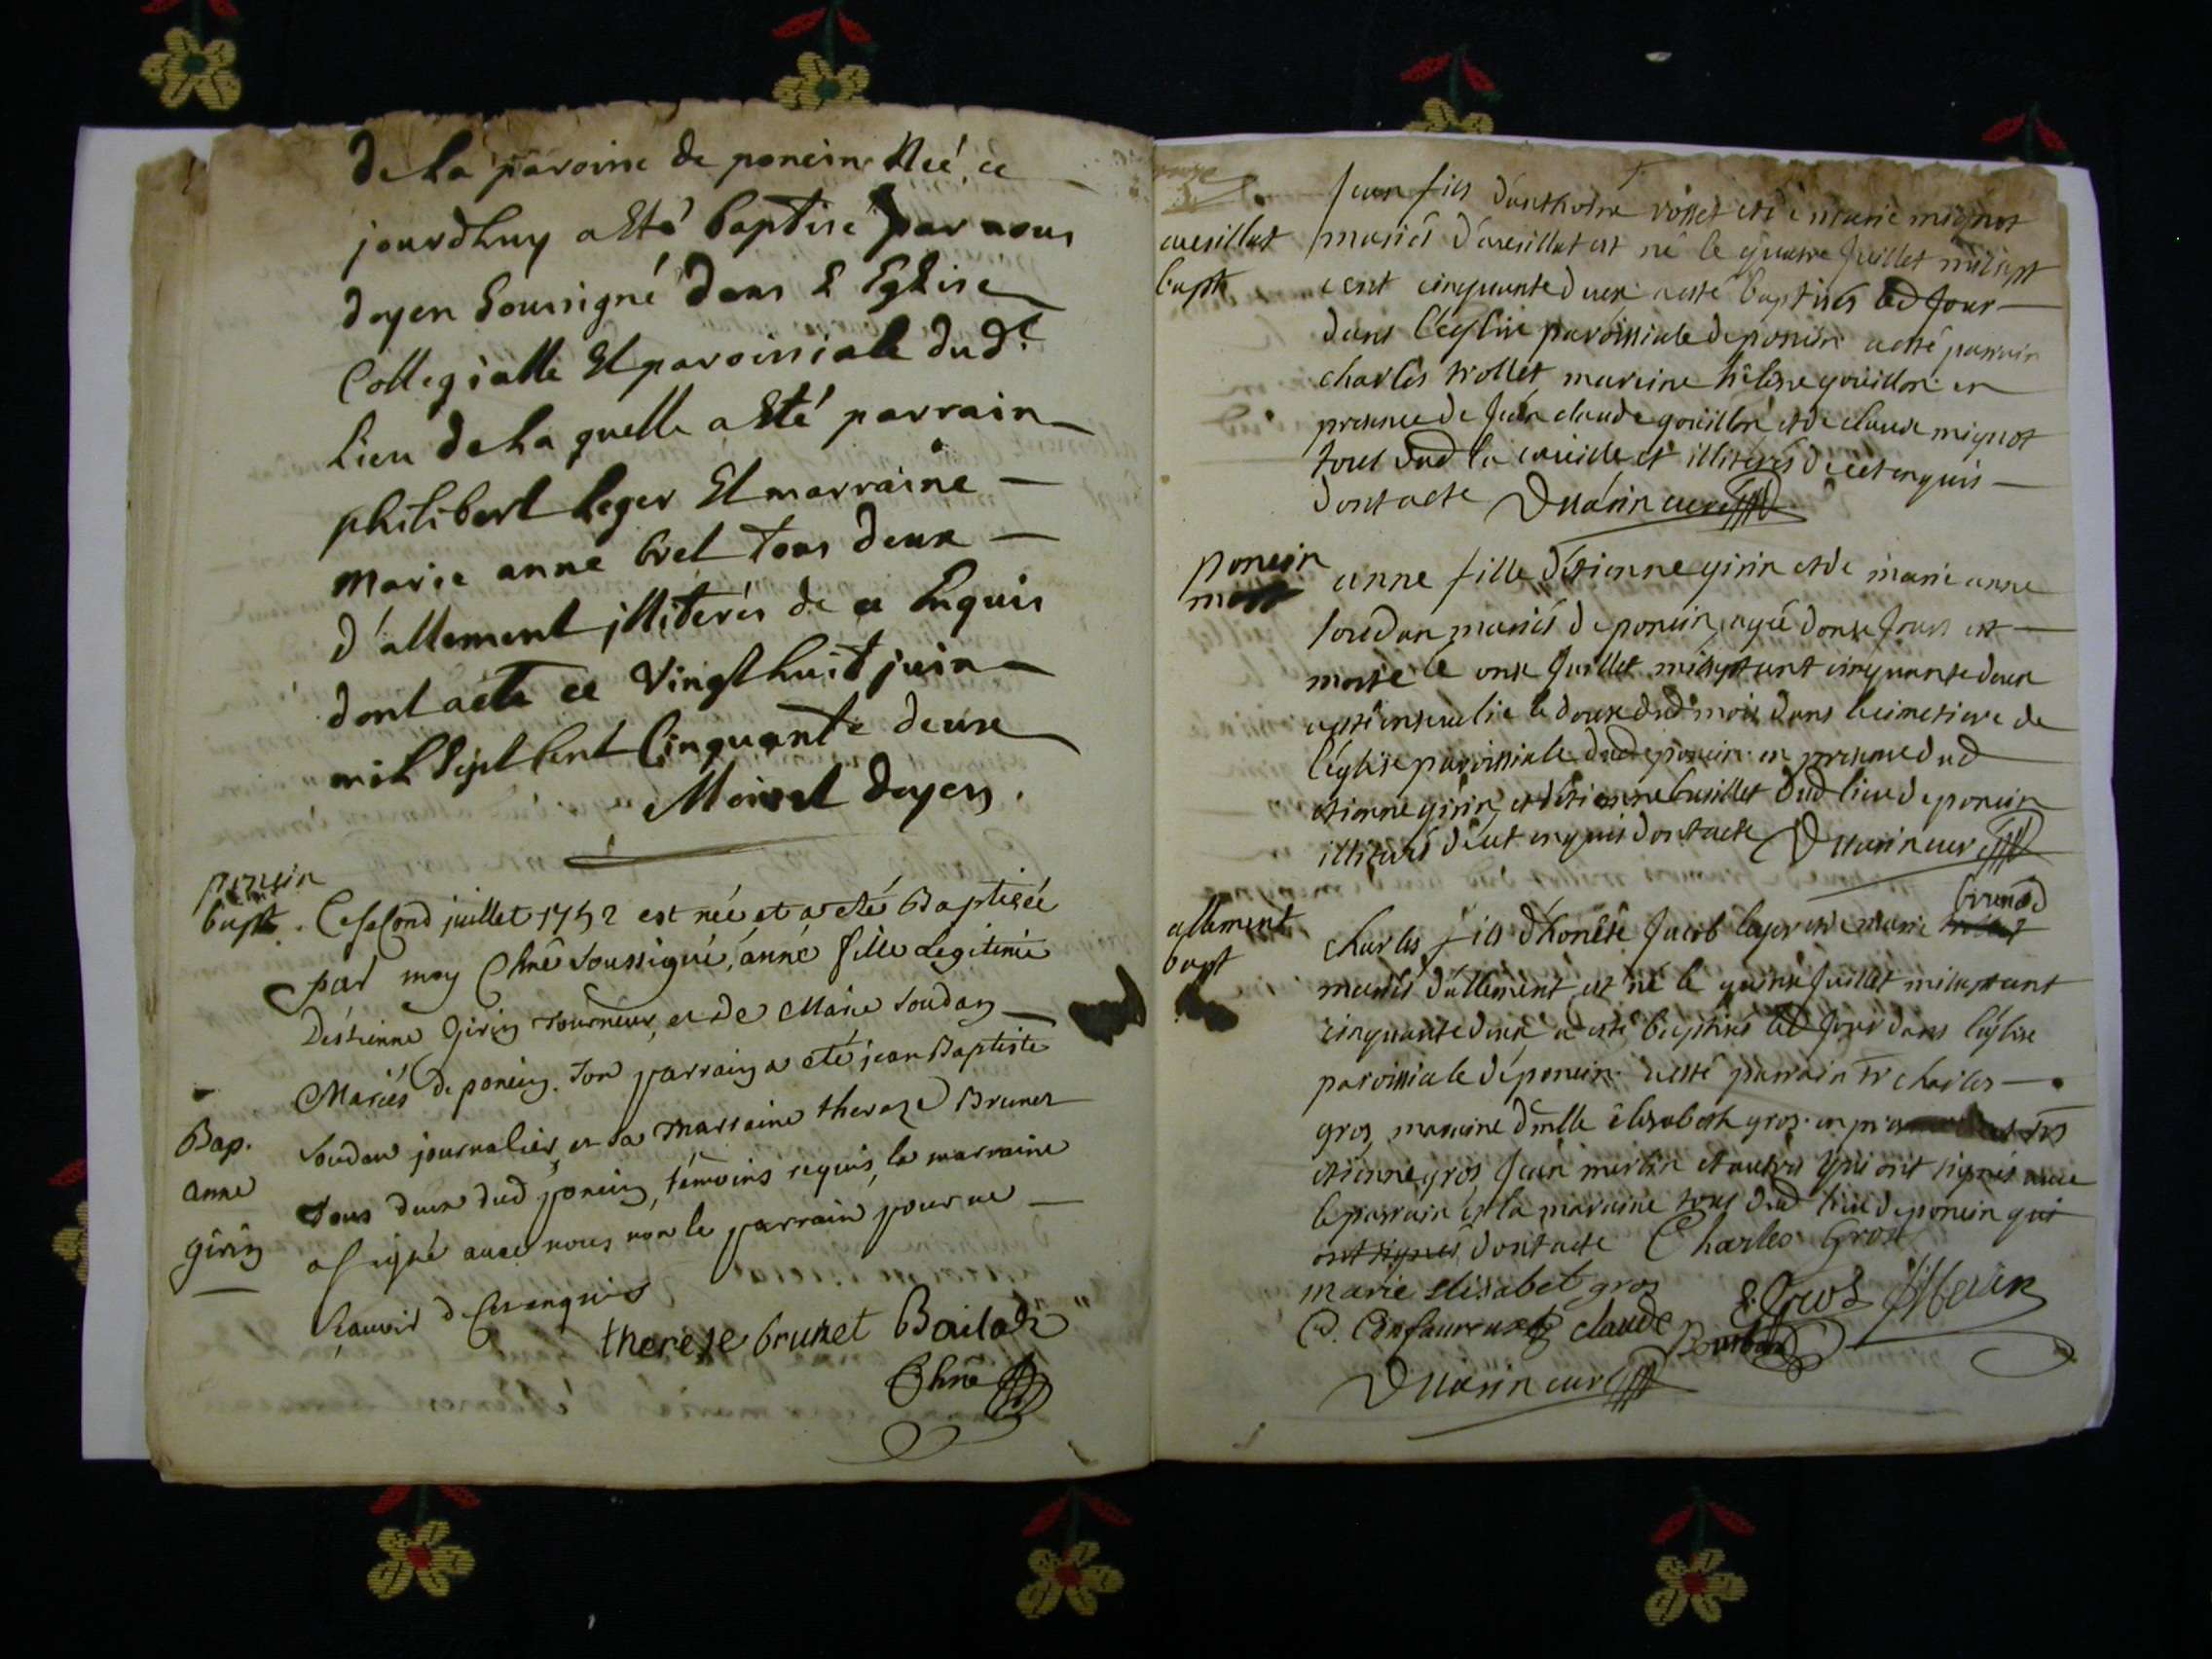 de la paroisse de poncin Née ce
jourdhuy a Eté baptisé par nous
doyen Soussigné dans L Eglise
Collegialle Et paroissiale dud.t
Lieu de la quelle a Eté parrain
philibert leger Et marraine
marie anne bret tous deux
d'allement jlliterés de ce Enquis
dont acte ce vingt huit juin
mil Sept Cent Cinquante deux
doyen.
poncin
bapt. Ce second juillet 1752 est née et a eté Baptisée
par moy Chne soussigné, anne fille legitimie
Destienne Girin tourneur, et de Marie Soudan
Mariés de poncin. Son parrain a eté jean Baptiste
Bap.
anne
girin
Soudan journalier, et sa marraine therese Brunet
tous deux dud poncin, témoins requis, la marraine
a signé avec nous non le parrain pour ne
sçavoir de ce enquis
therese brunet Bailat
Chne
avesillat
bapt
Jean fils danthoine rosset et de marie mignot
mariés davesillat est né le quatre Juillet mil sept
cent cinquante deux a esté baptisés led Jour
dans l'eglise paroissiale de poncin a esté parrain
charles trollet maraine helene gouillon en
presence de Jean claude gouillon et de claude mignot
tous dud la cueille et illiterés de cet enquis
dont acte Duarin curé
poncin
mort
anne fille d'etienne girin et de marie anne
soudan mariés de poncin, agée donze Jours est
morte le onze Juillet mil sept cent cinquante deux
a esté ensevelie le douze dud mois dans le cimetiere de
l'eglise paroissiale dud poncin en presence dud
etienne girin, et d'etienne busillet dud lieu de poncin
illiterés de cet enquis dont acte Duarin curé
allement
bapt
brunod
charles fils d'honete Jacob leger et de marie
mariés d'allement est né le quinze Juillet mil sept cent
cinquante deux a esté baptisés led Jour dans l'eglise
paroissiale de poncin a esté parrain sr charles
gros, maraine dmlle elisabeth gros en
etienne gros, Jean merlin et autres qui ont signés avec
le parrain et la maraine tous dud lieu de poncin qui
ont signés dont acte Charles Gros
marie elisabet gros
E. Gros
claude
Duarin curé